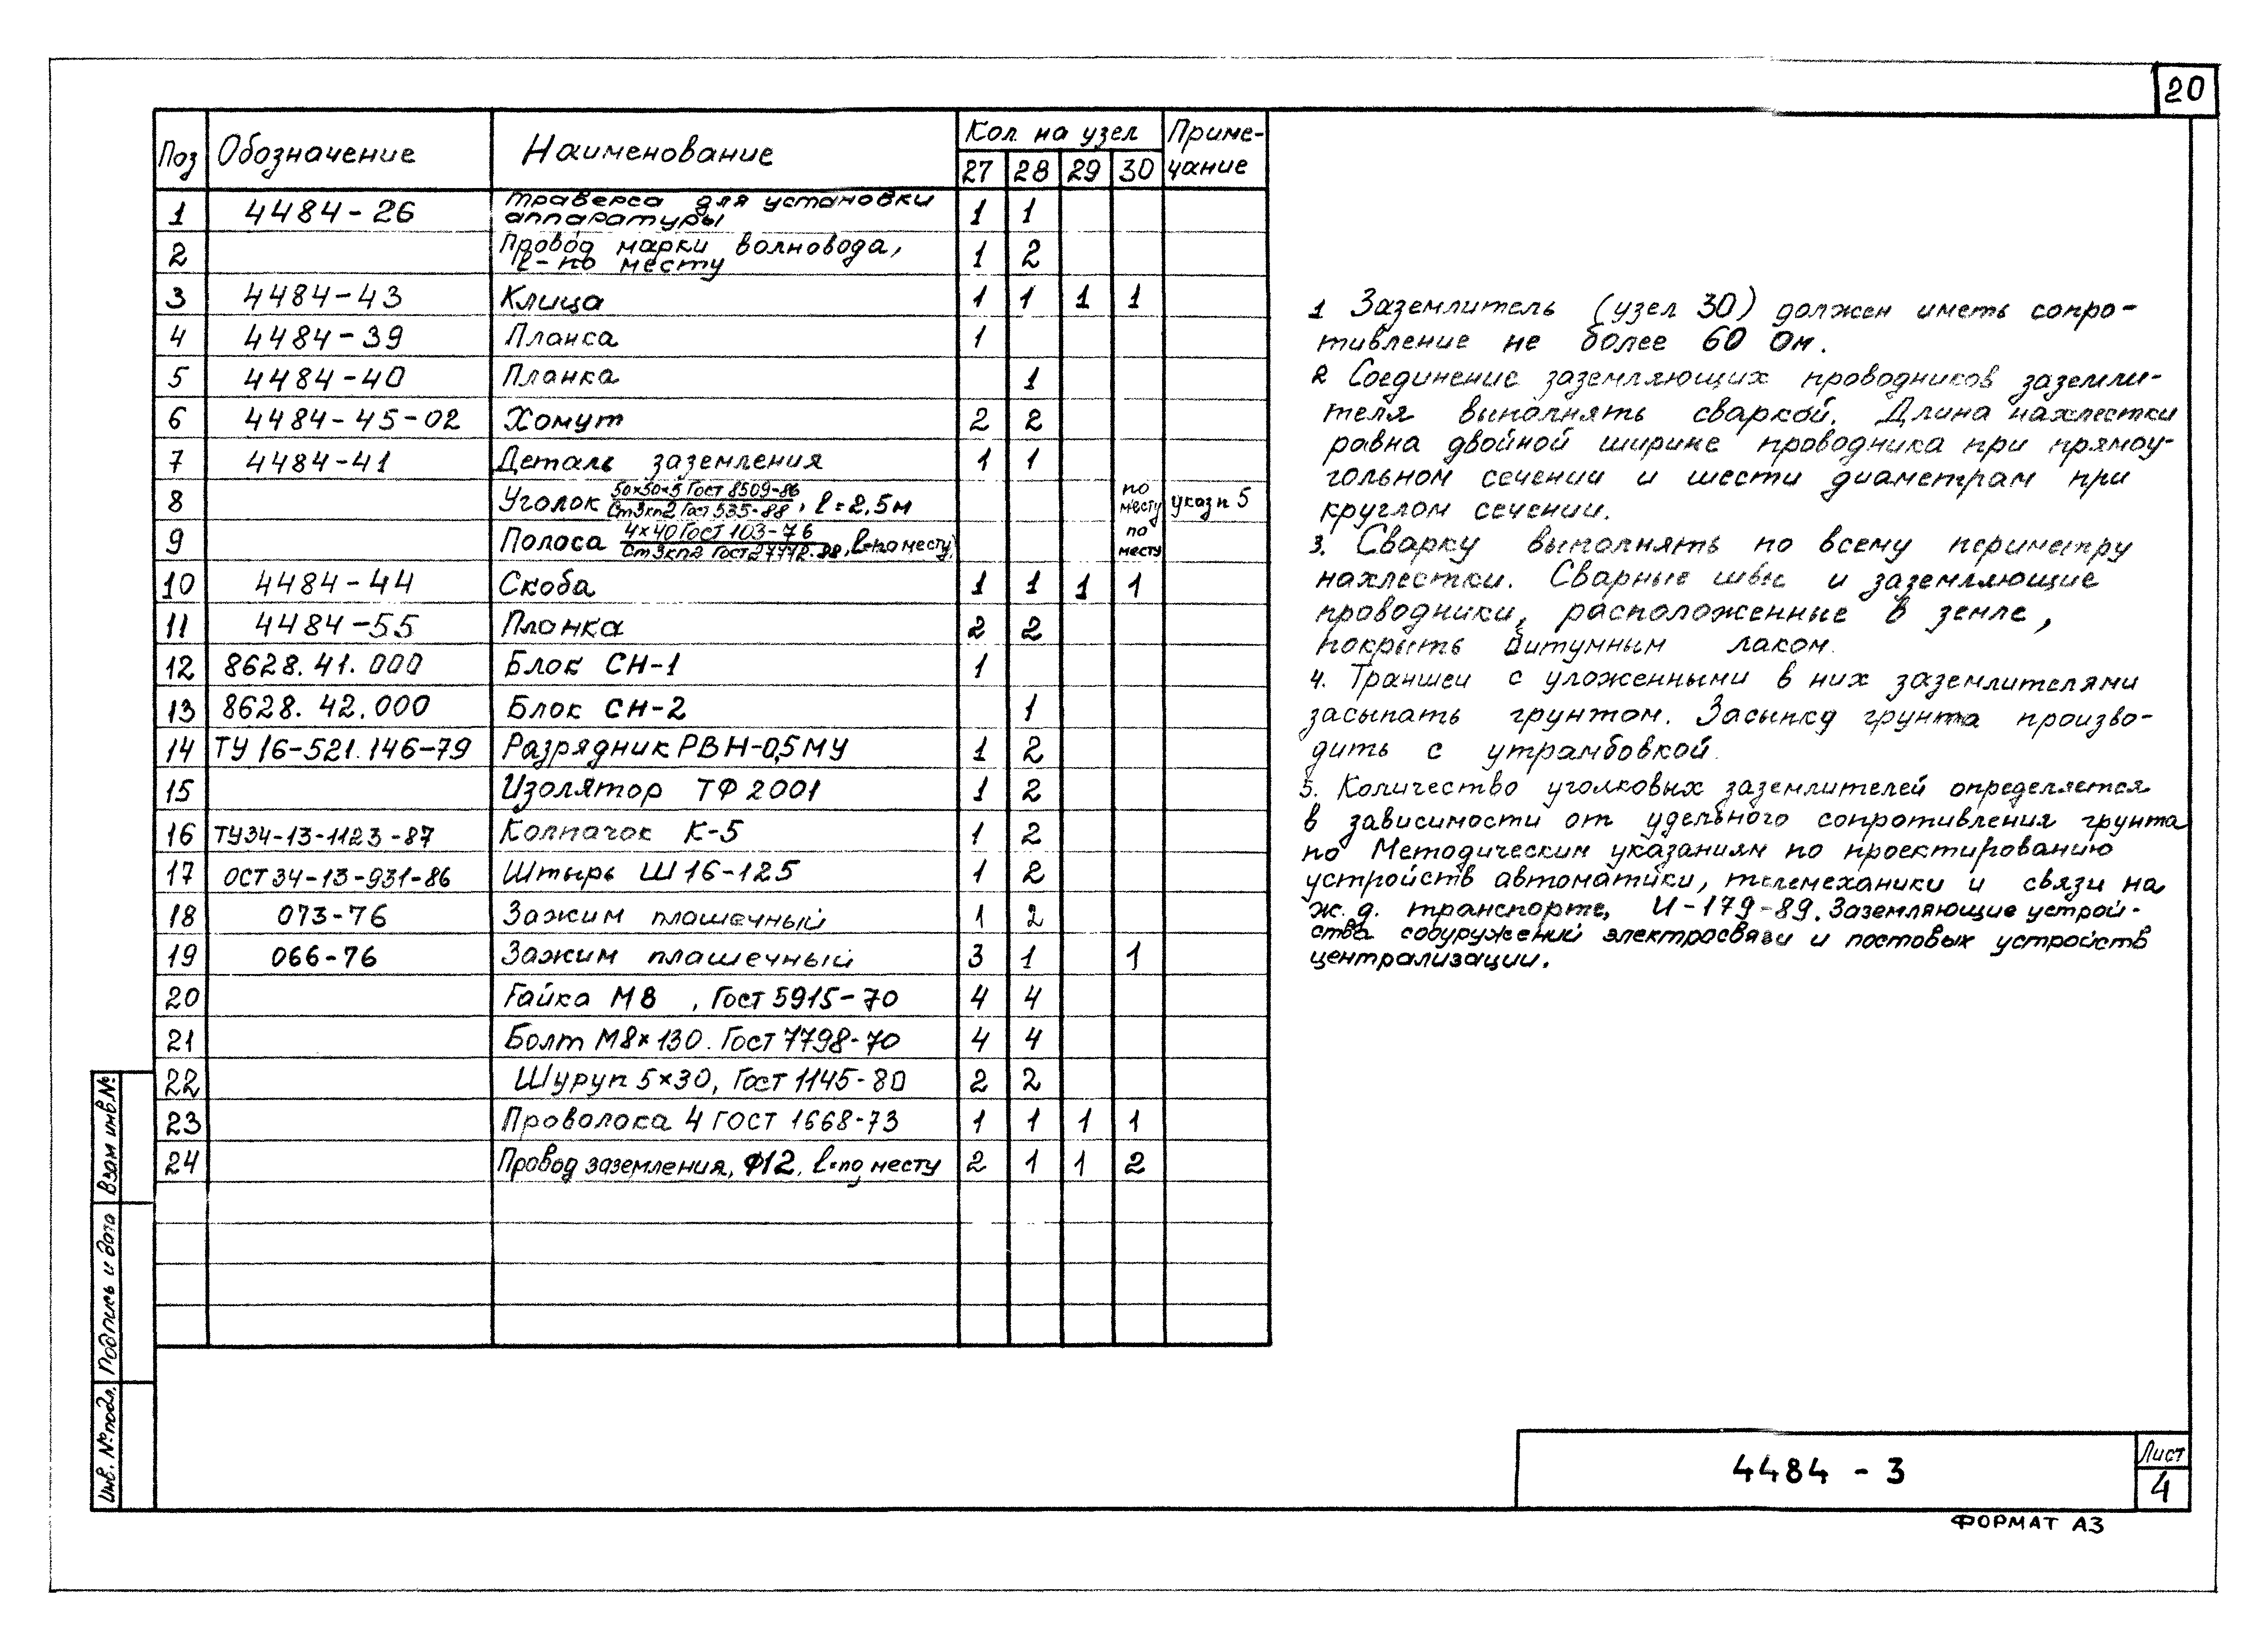 20
Поз Обозначение Наименование Кол. на узел Приме-
27 28 29 30 чание
1 4484-26 Траверса для установки
аппаратуры 1 1
2 Провод марки волновода,
ℓ-по месту 1 2
3 4484-43 Клица 1 1 1 1
4 4484-39 Планка 1
5 4484-40 Планка 1
6 4484-45-02 Хомут 2 2
7 4484-41 Деталь заземления 1 1
8 Уголок 50×50×5 Гост 8509-86 / Ст3кп2 Гост 535-88, ℓ=2,5м по месту указ п 5
9 Полоса 4×40 Гост 103-76 / Ст3кп2 Гост, ℓ=по месту, по месту
10 4484-44 Скоба 1 1 1 1
11 4484-55 Планка 2 2
12 8628.41.000 Блок СН-1 1
13 8628.42.000 Блок СН-2 1
14 ТУ 16-521.146-79 Разрядник РВН-0,5МУ 1 2
15 Изолятор ТФ 2001 1 2
16 ТУ34-13-1123-87 Колпачок К-5 1 2
17 ОСТ 34-13-931-86 Штырь Ш 16-125 1 2
18 073-76 Зажим плашечный 1 2
19 066-76 Зажим плашечный 3 1 1
20 Гайка М8 , Гост 5915-70 4 4
21 Болт М8×130. Гост 7798-70 4 4
22 Шуруп 5×30, Гост 1145-80 2 2
23 Проволока 4 ГОСТ 1668-73 1 1 1 1
24 Провод заземления, Ф12, ℓ=по месту 2 1 1 2
1 Заземлитель (узел 30) должен иметь сопро-
тивление не более 60 Ом.
2 Соединение заземляющих проводников заземли-
теля выполнять сваркой. Длина нахлестки
равна двойной ширине проводника при прямоу-
гольном сечении и шести диаметрам при
круглом сечении.
3. Сварку выполнять по всему периметру
нахлестки. Сварные швы и заземляющие
проводники, расположенные в земле,
покрыть битумным лаком.
4. Траншеи с уложенными в них заземлителями
засыпать грунтом. Засыпку грунта произво-
дить с утрамбовкой.
5. Количество уголковых заземлителей определяется
в зависимости от удельного сопротивления грунта
по Методическим указаниям по проектированию
устройств автоматики, телемеханики и связи на
ж.д. транспорте, И-179-89. Заземляющие устрой-
ства сооружений электросвязи и постовых устройств
централизации.
Взам инв.№
Подпись и дата
Инв. № подл.
4484 - 3
Лист
4
ФОРМАТ А3